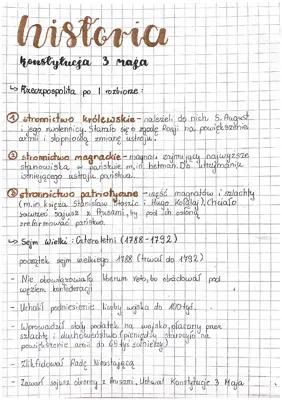 historia
Konstytucja 3 maja
↳ Rzeczpospolita po I rozbiorze:
① stronnictwo królewskie - należeli do nich S. August
i jego zwolennicy. Starało się o zgodę Rosji na powiększenie
armii i stopniową zmianę ustroju.
② stronnictwo magnackie - magnaci zajmujący najwyższe
stanowiska w państwie m.in. hetman. Do utrzymania
istniejącego ustroju państwa.
③ stronnictwo patriotyczne - część magnatów i szlachty
(m.in. księża Stanisław Staszic i Hugo Kołłątaj). Chciało
zawrzeć sojusz z Prusami, by pod ich osłoną
zreformować państwo.
↳ Sejm Wielki: Czteroletni (1788-1792)
początek sejmu wielkiego 1788 (trwał do 1792)
- Nie obowiązywało liberum veto, bo obradował pod
węzłem konfederacji
- Uchwalił podniesienie liczby wojska do 100 tyś.
- Wprowadził stały podatek na wojsko, płacony przez
szlachtę i duchowieństwo (pieniędzy starczyło na
powiększenie armii do 65 tyś żołnierzy)
- Zlikwidował Radę Nieustającą
- Zawarł sojusz obronny z Prusami, Uchwalił Konstytucję 3 Maja